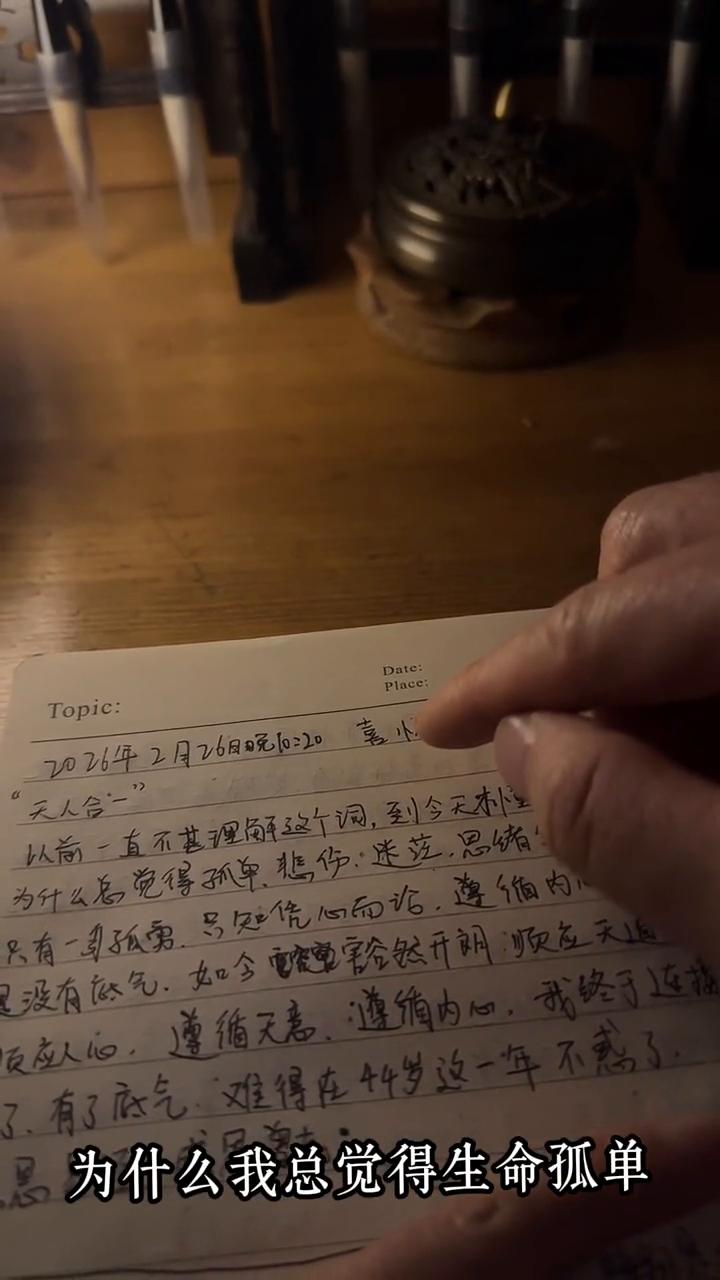 Topic:
Date:
Place:
2026年2月26日晚10:20 喜
“天人合一”
以前一直不甚理解这个词,到今天才懂
为什么总觉得孤单、悲伤、迷茫、思绪
只有一身孤勇、只知凭心而论、遵循内心
是没有底气、如今豁然开朗:顺应天道
顺应人心、遵循天意、遵循内心、我终于连接
了、有了底气、难得在44岁这一年不惑了、
为什么我总觉得生命孤单